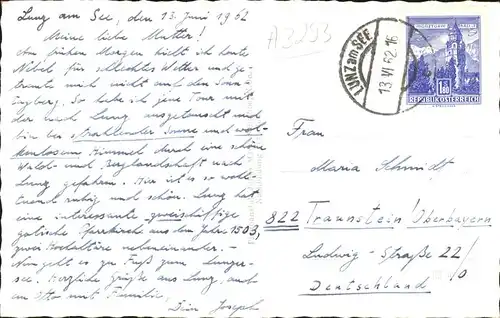 Lunz am See, den 13. Juni 1962
Meine liebe Mutter!
Am frühen Morgen hielt ich heute
Nebel für schlechtes Wetter und ge-
traute mich nicht auf den Sonn-
tagberg. So habe ich jene Tour mit
der nach Lunz ausgetauscht und
bin bei strahlender Sonne und wol-
kenlosem Himmel durch eine schöne
Wald- und Berglandschaft nach
Lunz gefahren. Hier ist es so wohl-
tuend ruhig und schön. Lunz hat
eine interessante zweischiffige
gotische Pfarrkirche aus dem Jahre 1503,
zwei Hochaltäre nebeneinander. -
Nun geht es zu Fuß zum Lunzer-
see. Herzliche Grüße aus Lunz, auch
an Otto mit Familie,
Dein Joseph
A3253
LUNZ am SEE
13.VI.62.16
1.80
REPUBLIK ÖSTERREICH
Frau
Maria Schmidt
822 Traunstein/Oberbayern
Ludwig-Straße 22/0
Deutschland